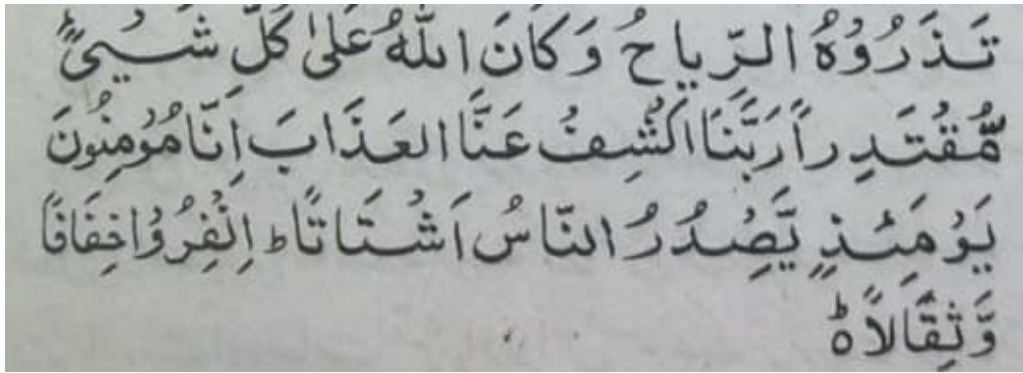 تَذَرُوْهُ الرِّيَاحُ وَكَانَ اللّٰهُ عَلىٰ كُلِّ شَيْئٍ
مُّقْتَدِراً رَبَّنَا اكْشِفْ عَنَّا العَذَابَ اِنَّا مُؤْمِنُونَ
يَوْمَئِذٍ يَّصْدُرُ النَّاسُ اَشْتَاتًا ط اِنْفِرُوْا خِفَافًا
وَّثِقَالًا ہ